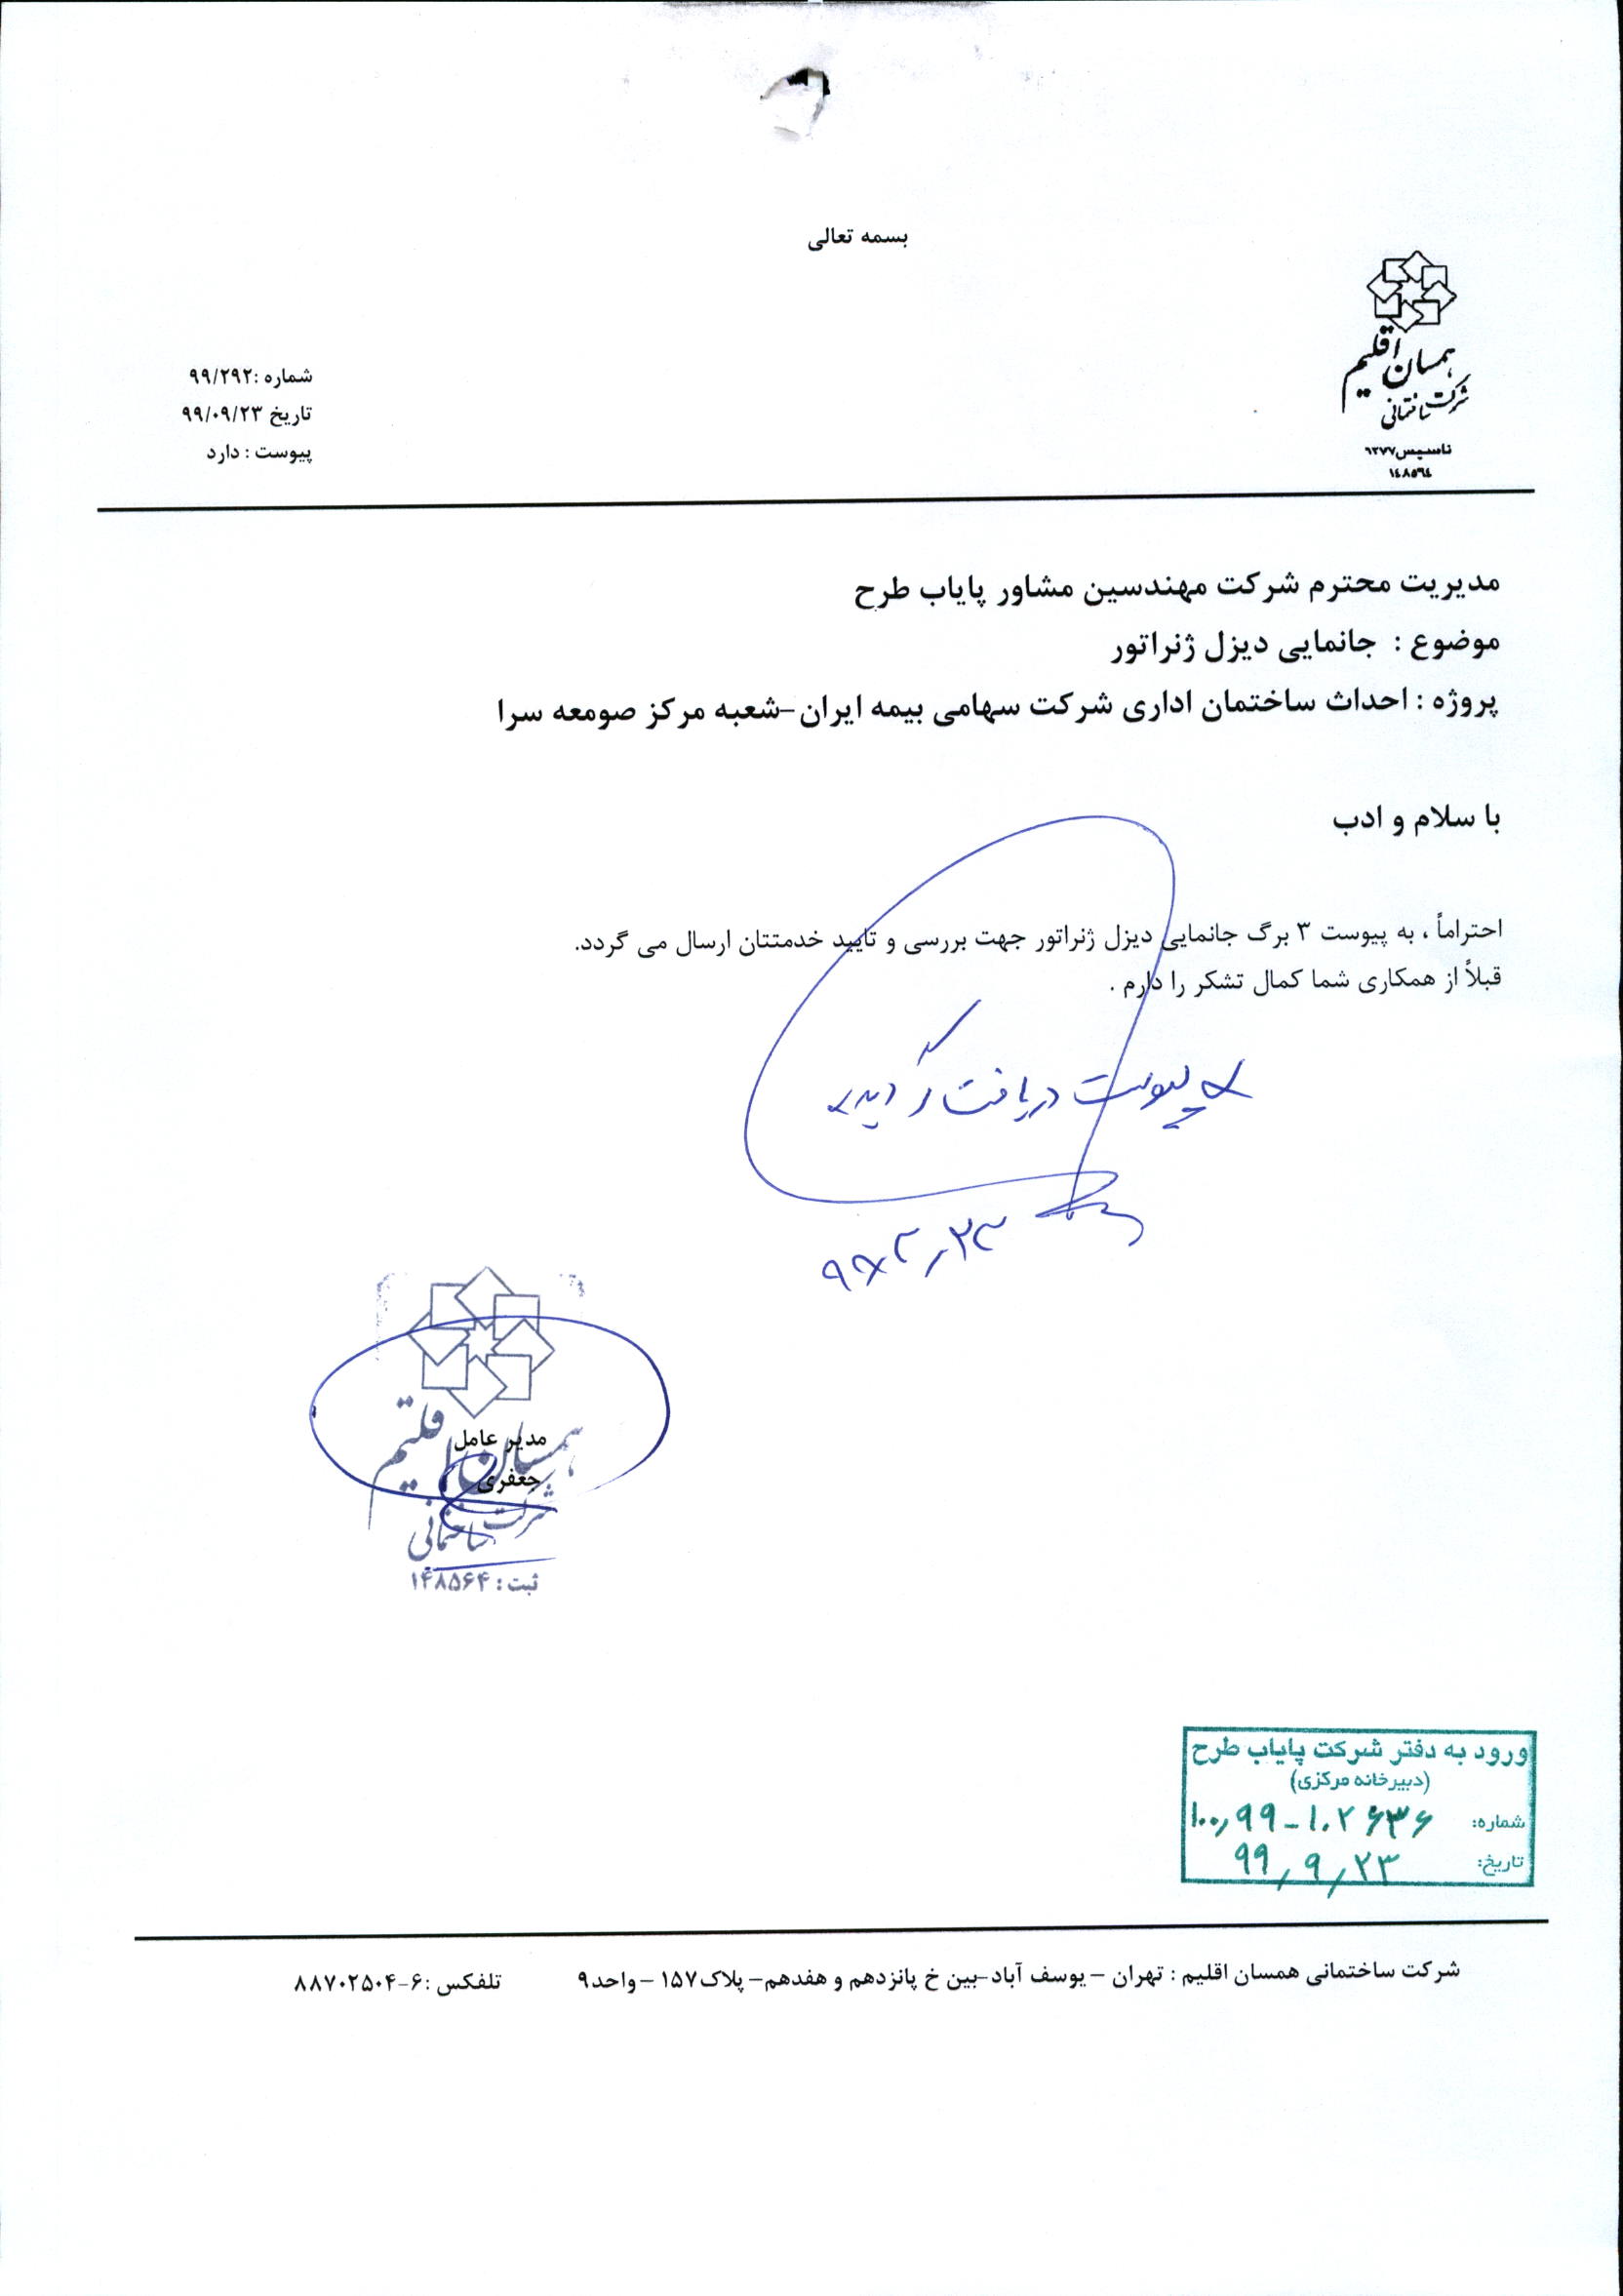 بسمه تعالی
همسان اقلیم
شرکت ساختمانی
تاسیس ۱۳۷۷
۱۴۸۵۶۴
شماره :۹۹/۲۹۲
تاریخ ۹۹/۰۹/۲۳
پیوست : دارد
مدیریت محترم شرکت مهندسین مشاور پایاب طرح
موضوع : جانمایی دیزل ژنراتور
پروژه : احداث ساختمان اداری شرکت سهامی بیمه ایران-شعبه مرکز صومعه سرا
با سلام و ادب
احتراماً ، به پیوست ۳ برگ جانمایی دیزل ژنراتور جهت بررسی و تایید خدمتتان ارسال می گردد.
قبلاً از همکاری شما کمال تشکر را دارم .
پیوست دریافت گردید
همسان اقلیم
مدیر عامل
جعفری
شرکت ساختمانی
ثبت : ۱۴۸۵۶۴
ورود به دفتر شرکت پایاب طرح
(دبیرخانه مرکزی)
شماره: ۱۰۰,۹۹-۱۰۲۶۳۶
تاریخ: ۹۹,۹,۲۳
شرکت ساختمانی همسان اقلیم : تهران – یوسف آباد-بین خ پانزدهم و هفدهم- پلاک۱۵۷ –واحد۹ تلفکس :۶-۸۸۷۰۲۵۰۴